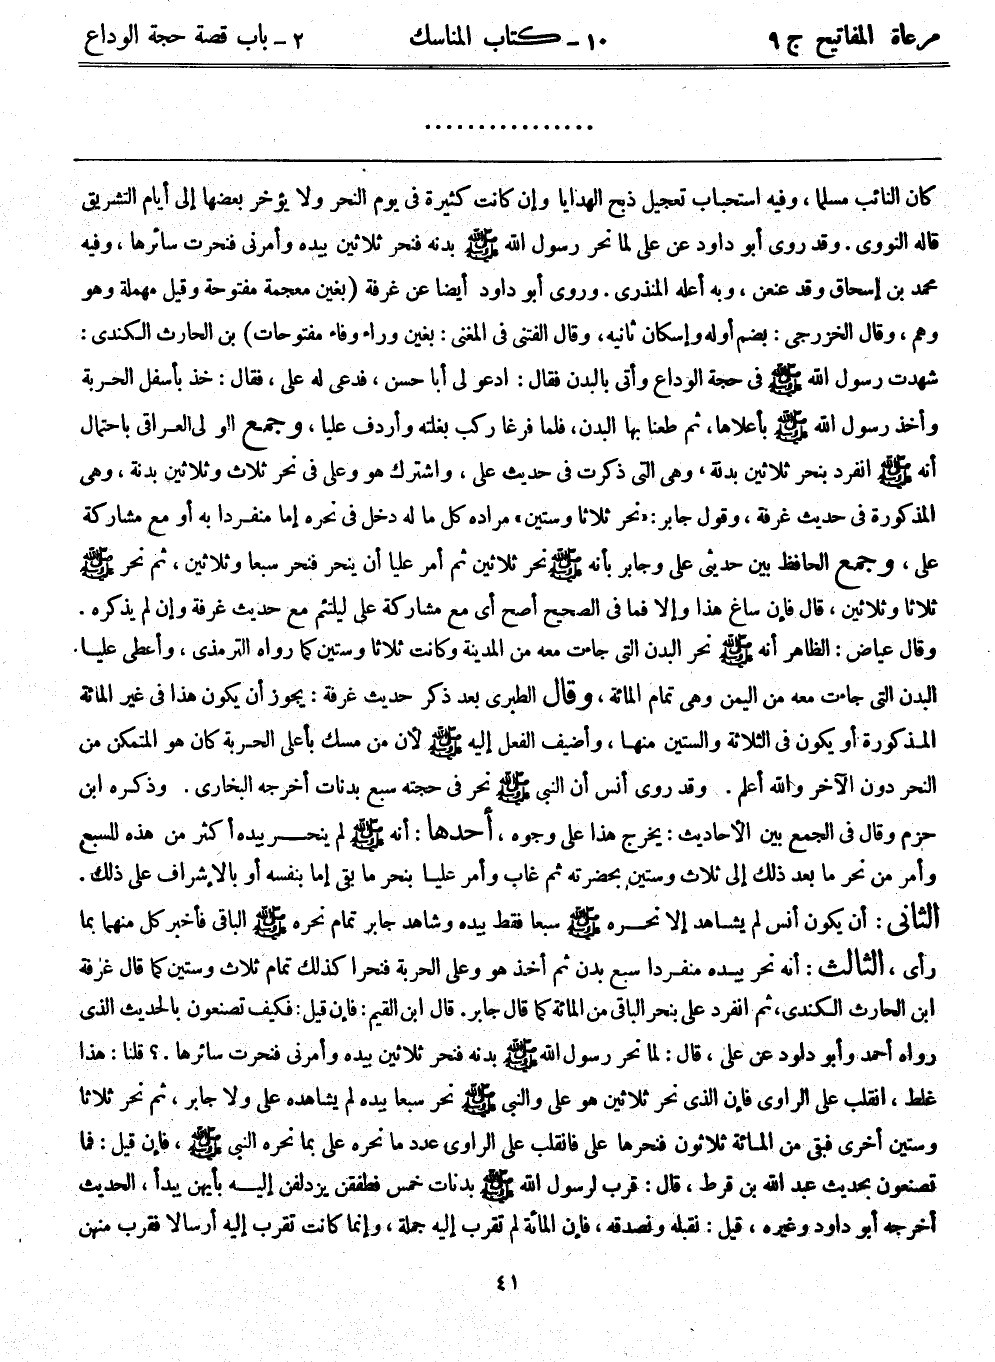 مرعاة المفاتيح ج ٩ ١٠ - كتاب المناسك ٢ - باب قصة حجة الوداع
................
كان النائب مسلما ، وفيه استحباب تعجيل ذبح الهدايا وإن كانت كثيرة فى يوم النحر ولا يؤخر بعضها إلى أيام التشريق
قاله النووى . وقد روى أبو داود عن على لما نحر رسول الله ﷺ بدنه فنحر ثلاثين بيده وأمرنى فنحرت سائرها ، وفيه
محمد بن إسحاق وقد عنعن ، وبه أعله المنذرى . وروى أبو داود أيضا عن غرفة (بغين معجمة مفتوحة وقيل مهملة وهو
وهم ، وقال الخزرجى : بضم أوله وإسكان ثانيه، وقال الفتنى فى المغنى : بغين وراء وفاء مفتوحات) بن الحارث الكندى :
شهدت رسول الله ﷺ فى حجة الوداع وأتى بالبدن فقال : ادعو لى أبا حسن ، فدعى له على ، فقال : خذ بأسفل الحربة
وأخذ رسول الله ﷺ بأعلاها، ثم طعنا بها البدن، فلما فرغا ركب بغلته وأردف عليا ، وجمع الو لى العراقى باحتمال
أنه ﷺ انفرد بنحر ثلاثين بدنة ، وهى التى ذكرت فى حديث على ، واشترك هو وعلى فى نحر ثلاث وثلاثين بدنة ، وهى
المذكورة فى حديث غرفة ، وقول جابر : «نحر ثلاثا وستين» مراده كل ما له دخل فى نحره إما منفردا به أو مع مشاركة
على ، وجمع الحافظ بين حديثى على وجابر بأنه ﷺ نحر ثلاثين ثم أمر عليا أن ينحر فنحر سبعا وثلاثين ، ثم نحر ﷺ
ثلاثا وثلاثين ، قال فإن ساغ هذا وإلا فما فى الصحيح أصح أى مع مشاركة على ليلتئم مع حديث غرفة وإن لم يذكره .
وقال عياض : الظاهر أنه ﷺ نحر البدن التى جاءت معه من المدينة وكانت ثلاثا وستين كما رواه الترمذى ، وأعطى عليا
البدن التى جاءت معه من اليمن وهى تمام المائة ، وقال الطبرى بعد ذكر حديث غرفة : يجوز أن يكون هذا فى غير المائة
المذكورة أو يكون فى الثلاثة والستين منها ، وأضيف الفعل إليه ﷺ لأن من مسك بأعلى الحربة كان هو المتمكن من
النحر دون الآخر والله أعلم . وقد روى أنس أن النبى ﷺ نحر فى حجته سبع بدنات أخرجه البخارى . وذكره ابن
حزم وقال فى الجمع بين الأحاديث : يخرج هذا على وجوه ، أحدها : أنه ﷺ لم ينحر بيده أكثر من هذه للسبع
وأمر من نحر ما بعد ذلك إلى ثلاث وستين بحضرته ثم غاب وأمر عليا بنحر ما بقى إما بنفسه أو بالإشراف على ذلك .
الثانى : أن يكون أنس لم يشاهد إلا نحره ﷺ سبعا فقط بيده وشاهد جابر تمام نحره ﷺ الباقى فأخبر كل منهما بما
رأى ، الثالث : أنه نحر بيده منفردا سبع بدن ثم أخذ هو وعلى الحربة فنحرا كذلك تمام ثلاث وستين كما قال غرفة
ابن الحارث الكندى، ثم انفرد على بنحر الباقى من المائة كما قال جابر . قال ابن القيم : فإن قيل : فكيف تصنعون بالحديث الذى
رواه أحمد وأبو دلود عن على ، قال : لما نحر رسول الله ﷺ بدنه فنحر ثلاثين بيده وأمرنى فنحرت سائرها . ؟ قلنا : هذا
غلط ، انقلب على الراوى فإن الذى نحر ثلاثين هو على والنبى ﷺ نحر سبعا بيده لم يشاهده على ولا جابر ، ثم نحر ثلاثا
وستين أخرى فبقى من المائة ثلاثون فنحرها على فانقلب على الراوى عدد ما نحره على بما نحره النبى ﷺ ، فإن قيل : فما
تصنعون بحديث عبد الله بن قرط ، قال : قرب لرسول الله ﷺ بدنات خمس فطفقن يزدلفن إليه بأيهن يبدأ ، الحديث
أخرجه أبو داود وغيره ، قيل : نقبله ونصدقه ، فإن المائة لم تقرب إليه جملة ، وإنما كانت تقرب إليه أرسالا فقرب منهن
٤١